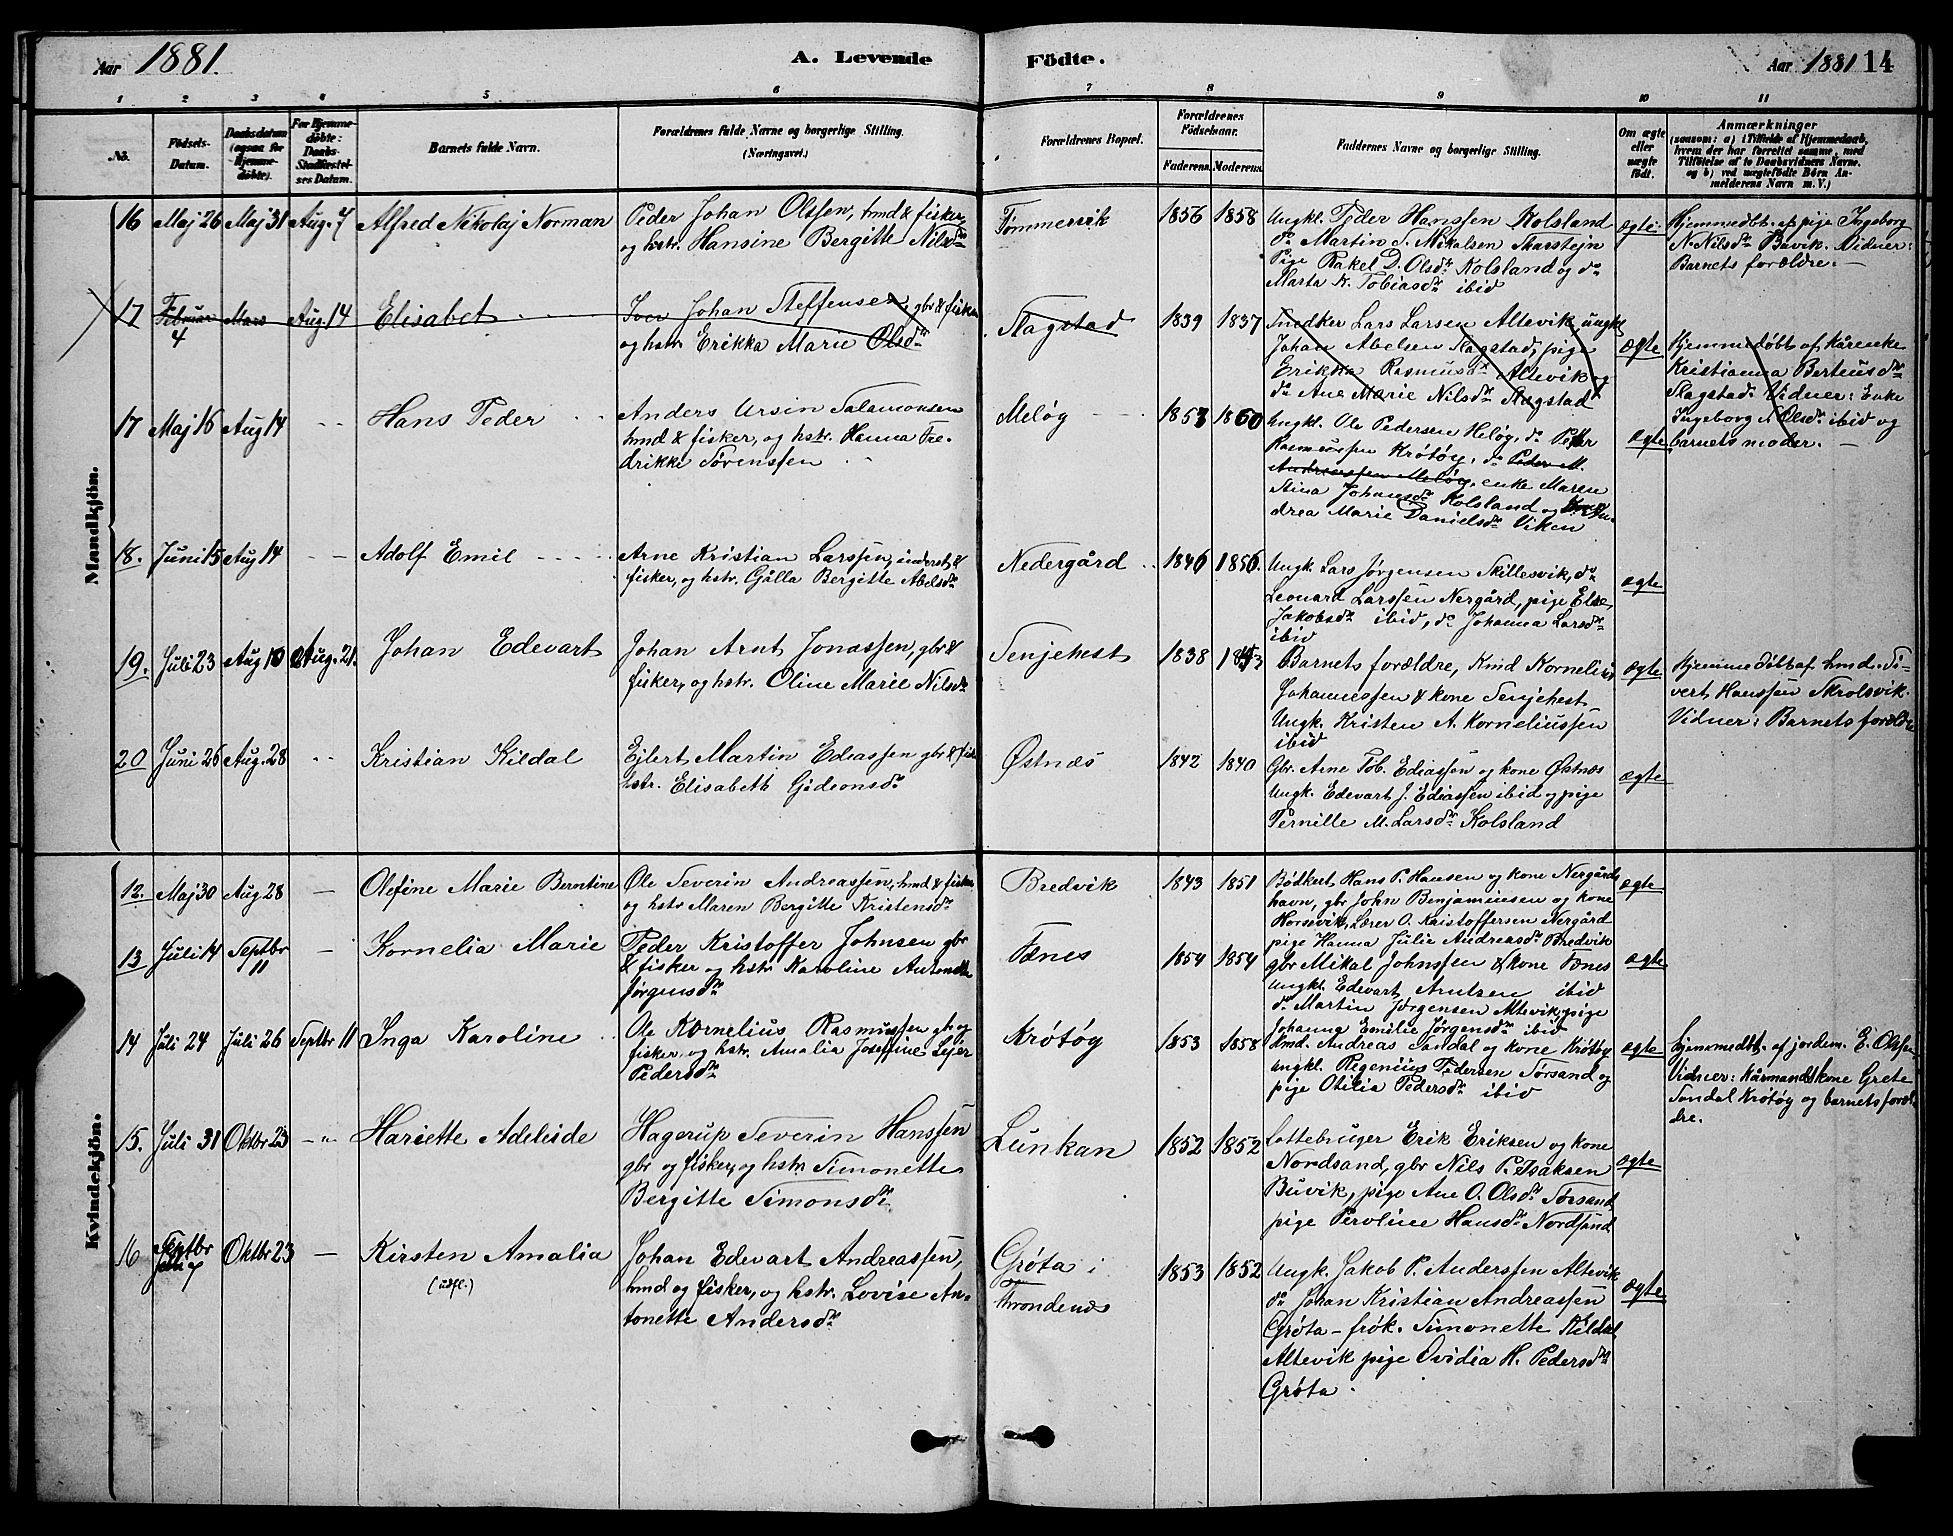 Aar 1881.
A. Levende
Födte.
Aar 1881 14
1 2 3 4 5 6 7 8 9 10 11
No.
Födsels-
Datum.
Daabsdatum
(ogsaa for
Hjemme-
döbte).
For Hjemme-
döbte:
Daabs-
Stadfæstel-
ses Datum.
Barnets fulde Navn.
Forældrenes fulde Navne og borgerlige Stilling.
(Næringsvei.)
Forældrenes Bopæl.
Forældrenes
Födselsaar.
Faderens. Moderens.
Faddernes Navne og borgerlige Stilling.
Om ægte
eller
uægte
födt.
Anmærkninger
(saasom: a) i Tilfælde af Hjemmedaab,
hvem der har forrettet samme, med
Tilföielse af to Daabsvidners Navne.
og b) ved uægtefödte Börn An-
melderens Navn m. V.)
Mandkjön.
16 Maj 26 Maj 31 Aug. 7 Alfred Nikolaj Norman
Peder Johan Olssen, hmd & fisker,
og hstr. Hansine Bergitte Nilsdr
Tømmervik
1856 1858
Ungkl. Peder Hanssen Kolsland
do Martin S. Mikalsen Skarstejn
Pige Rakel D. Olsdr Kolsland og do
Marta K. Tobiasdr ibid
ægte
Hjemmedbt. af pige Ingeborg
N. Nilsdr Buvik. Vidner:
Barnets forældre.
17 Februar 4 Mars Aug. 14 Elisabet
Iver Johan Steffensen, gbr & fisker
og hstr Erikka Marie Olsdr
Slagstad
1839 1837
Snedker Lars Larsen Altevik, ungkl
Johan Abelsen Slagstad, pige
Erikka Rasmusdr Altevik og
do Ane Marie Nilsdr Slagstad
ægte
Hjemmedøbt af Kårenke
Kristianna Berteusdr
Slagstad. Vidner: Enke
Ingeborg N. Olsdr ibid og
barnets moder.
17 Maj 16 Aug 14 Hans Peder
Anders Ursin Salamonsen
hmd & fisker, og hstr. Hanna Fre-
drikke Sørenssen
Meløy
1853 1860
Ungkl. Ole Pedersen Meløy, do Petter
Rasmussen Krøtøy, do Peder M.
Andreassen Meløy, enke Maren
Stina Johansdr Kolsland og An-
drea Marie Danielsdr Viken
ægte
18. Juni 15 Aug 14 Adolf Emil
Arne Kristian Larssen, inderst &
fisker, og hstr. Gjølla Bergitte Abelsdr
Nedergård
1846 1856.
Ungk. Lars Jørgensen Skillesvik, do
Leonard Larssen Nergård, pige Else
Jakobsdr ibid, do Johanna Larsdr
ibid
ægte
19. Juli 23 Aug 10 Aug. 21. Johan Edevart
Johan Arnt Jonassen, gbr &
fisker, og hstr. Oline Marie Nilsdr
Senjehest
1838 1843
Barnets forældre, Kmd Kornelius
Johannessen & kone Senjehest
Ungk. Kristen A. Korneliussen
ibid
ægte
Hjemmedøbt af hmd. Si-
vert Hanssen Skrolsvik.
Vidner: Barnets forældre
20 Juni 26 Aug. 28 Kristian Kildal
Ejlert Martin Ediassen gbr & fisk
hstr. Elisabeth Gideonsdr
Østnæs
1842 1840
Gbr. Arne Tob. Ediassen og kone Østnæs
Ungk. Edevart J. Ediassen ibid og pige
Pernille M. Larsdr Kolsland
ægte
Kvindekjön.
12. Maj 30 Aug 28 Olefine Marie Berntine
Ole Severin Andreassen, hmd & fisker
og hstr Maren Bergitte Kristensdr
Bredvik
1843 1851
Bødkert Hans P. Hansen og kone Nergårds
havn, gbr John Benjaminsen og kone
Horsevik, Lærer O. Kristoffersen Nergård
pige Hanna Julie Andreasdr Bredvik
ægte
13 Juli 14 Septbr 11 Kornelia Marie
Peder Kristoffer Johnsen gbr
& fisker og hstr Karoline Antonette
Jørgensdr
Fænes
1854 1854
gbr Mikal Johnssen & kone Fænes
Ungkl. Edevart Arntzen ibid
do Martin Jørgensen Altevik, pige
Johanna Emilie Jørgensdr ibid
ægte
14 Juli 24 Juli 26 Septbr 11 Inga Karoline
Ole Kornelius Rasmussen gbr og
fisker, og hstr. Amalia Josefine Lejer
Pedersdr
Krøtøy
1853 1858
Hmd. Andreas Sandal og kone Krøtøy
ungkl. Regenius Pedersen Sørsand og
pige Otilia Pedersdr ibid
ægte
Hjemmedbt. af jordem. E. Olssen
Vidner: Kårmandskone Grete
Sandal Krøtøy og barnets foræl-
dre.
15. Juli 31 Oktbr 23 Hariette Adeleide
Hagerup Severin Hanssen
gbr og fisker, og hstr Simonette
Bergitte Simonsdr
Lunkan
1852 1852
Lottebruger Erik Eriksen og kone
Nordsand, gbr Nils P. Isaksen
Buvik, pige Ane O. Olsdr Sørsand
pige Peroline Hansdr Nordsand
ægte
16 Septbr 7 Oktbr 23 Kirsten Amalia
(udfl.)
Johan Edevart Andreassen,
hmd og fisker, og hstr. Lovise An-
tonette Andersdr
Grøta i
Throndenæs
1853 1852
Ungk. Jakob P. Anderssen Altevik
do Johan Kristian Andreassen
Grøta – frøk. Simonette Kildal
Altevik pige Ovidia H. Pedersdr
Grøta.
ægte